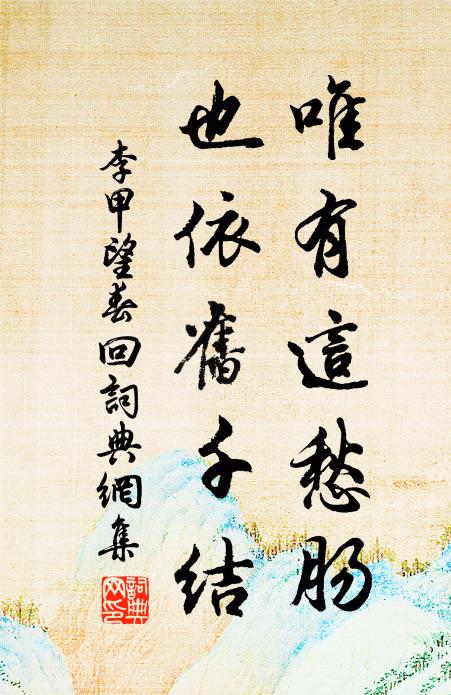 唯有這愁肠
也依舊千结
李甲望春回詞典網集
詞典
网印